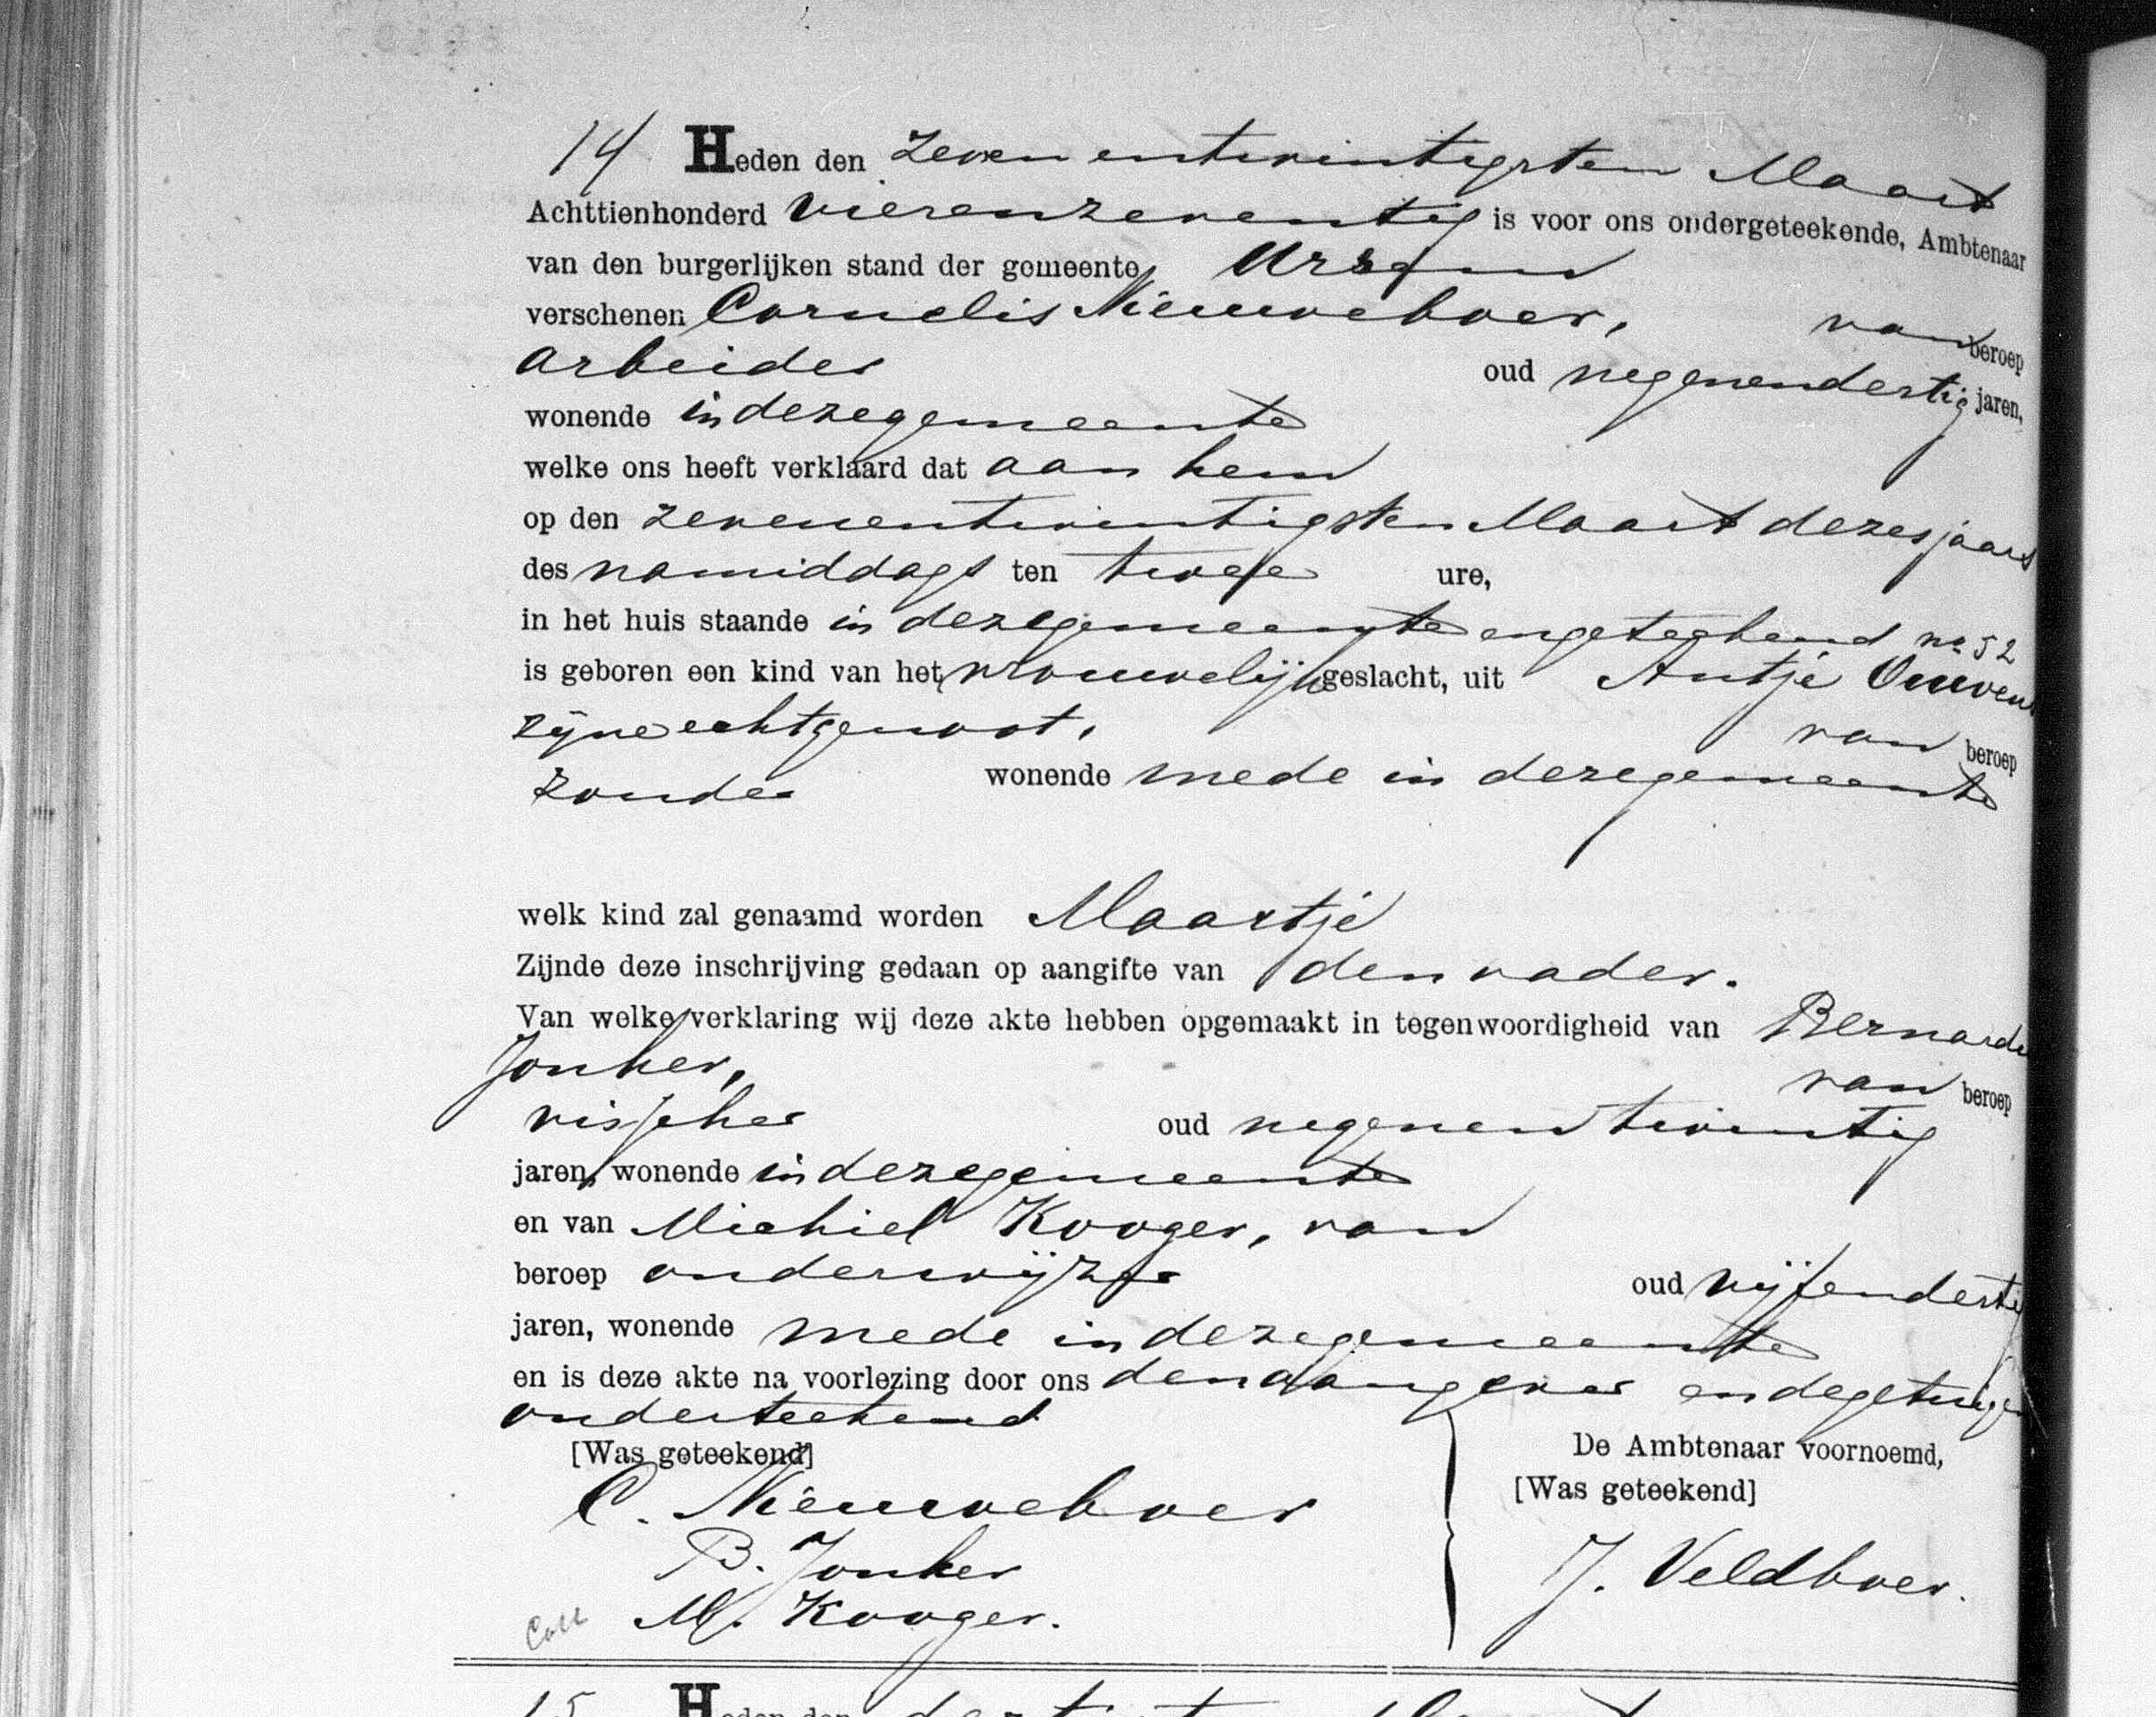 14 Heden den zevenentwintigsten Maart
Achttienhonderd vierenzeventig is voor ons ondergeteekende, Ambtenaar
van den burgerlijken stand der gemeente Ursem
verschenen Cornelis Nieuweboer, van beroep
arbeider oud negenendertig jaren,
wonende in deze gemeente
welke ons heeft verklaard dat aan hem
op den zevenentwintigsten Maart dezes jaars
des namiddags ten twee ure,
in het huis staande in deze gemeente en geteekend no 52
is geboren een kind van het vrouwelijk geslacht, uit Antje Ouwen
zijne echtgenoot, van beroep
zonder wonende mede in deze gemeente
welk kind zal genaamd worden Maartje
Zijnde deze inschrijving gedaan op aangifte van den vader.
Van welke verklaring wij deze akte hebben opgemaakt in tegenwoordigheid van Bernardu
Jonker, van beroep
visscher oud negenentwintig
jaren, wonende in deze gemeente
en van Michiel Kooger, van
beroep onderwijzer oud vijfendertig
jaren, wonende mede in deze gemeente
en is deze akte na voorlezing door ons den aangever en de getuigen
onderteekend
[Was geteekend] De Ambtenaar voornoemd,
C. Nieuweboer [Was geteekend]
B. Jonker J. Veldboer.
Coll M. Kooger.
15 Heden den dertigsten Maart